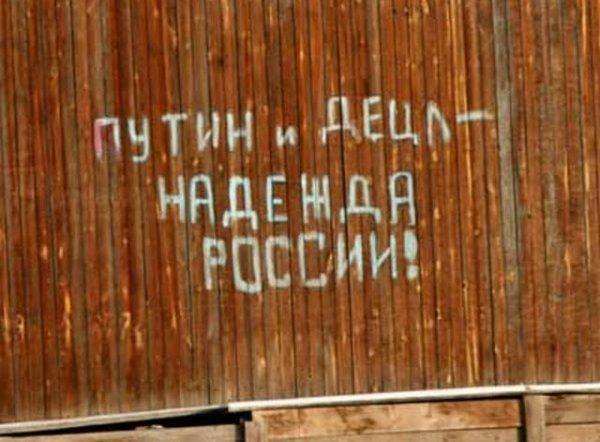 ПУТИН и ДЕЦЛ —
НАДЕЖДА
РОССИИ!